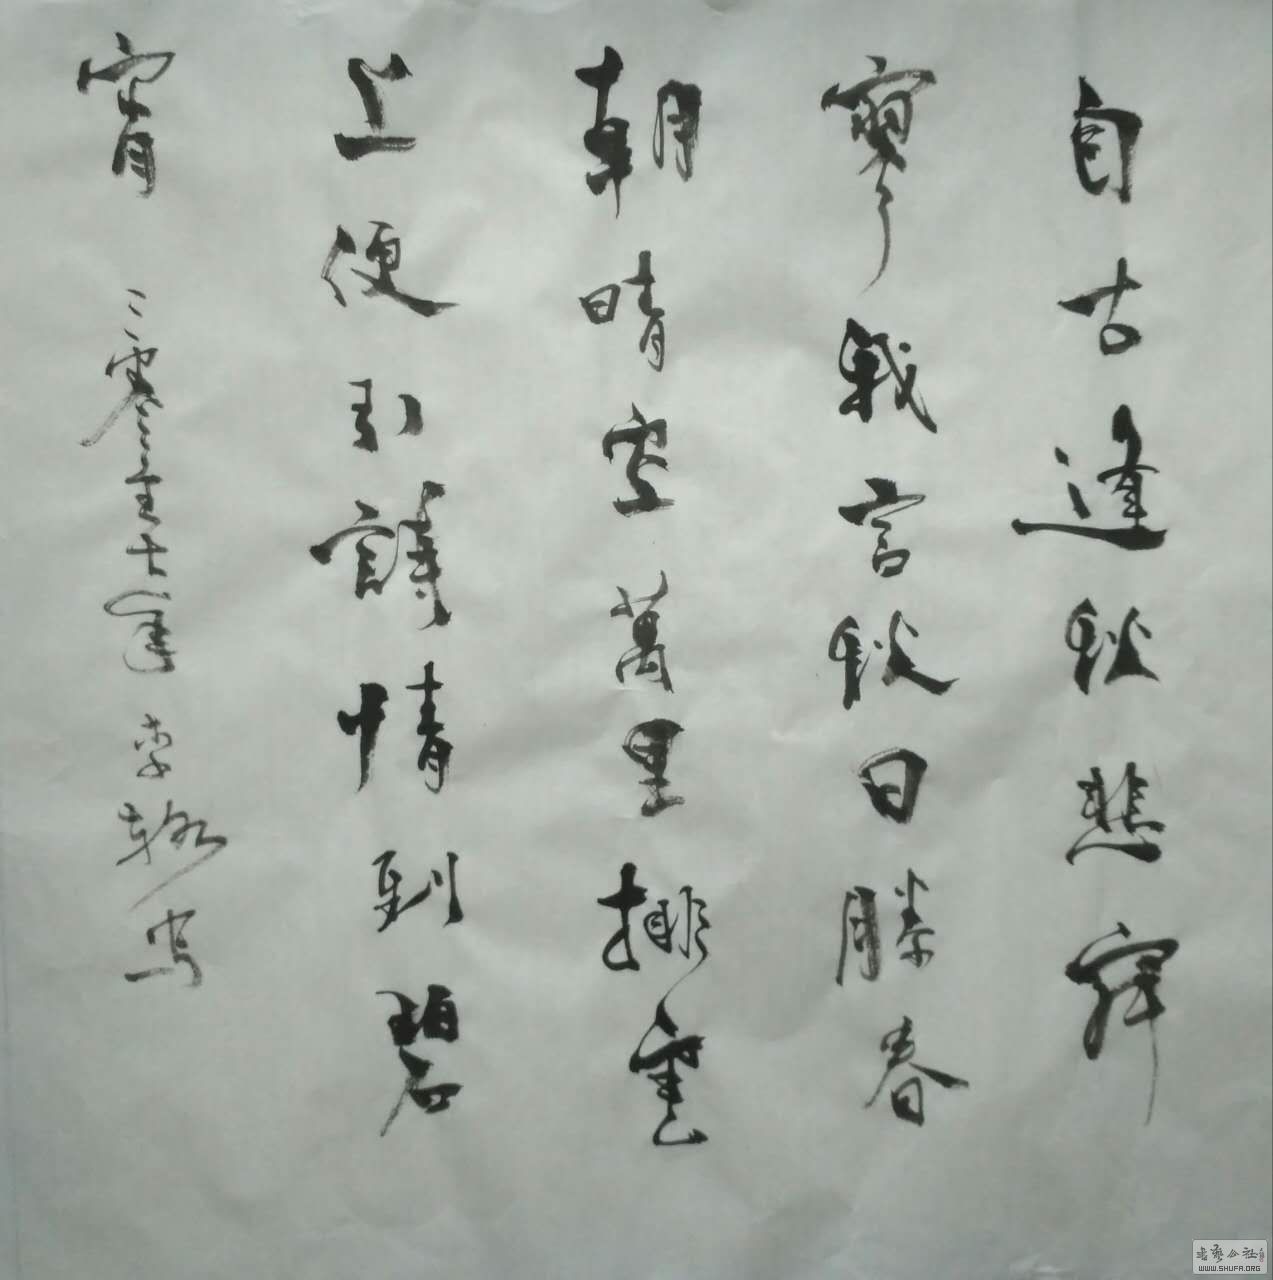 自古逢秋悲寂
寥我言秋日勝春
朝晴空萬里排雲
上便引詩情到碧
宵 二零壹七年 李 寫
书艺公社
WWW.SHUFA.ORG